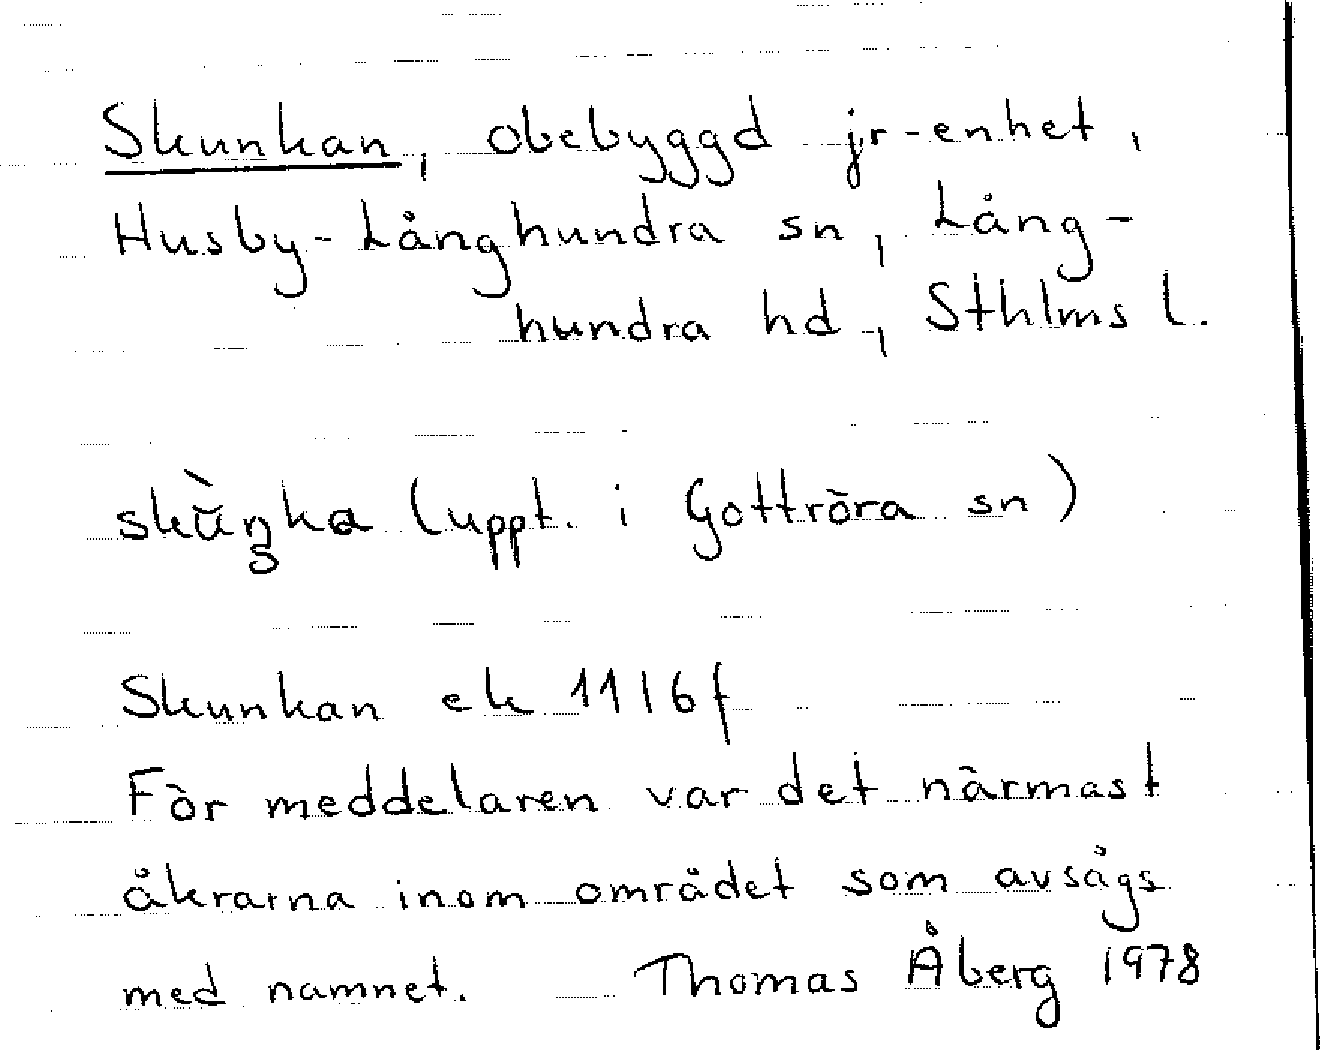 Skunkan, obebyggd jr-enhet,
Husby-Långhundra sn, Lång-
hundra hd, Sthlms l.
skùŋka (uppt. i Gottröra sn)
Skunkan ek 11I6f
För meddelaren var det närmast
åkrarna inom området som avsågs
med namnet. Thomas Åberg 1978